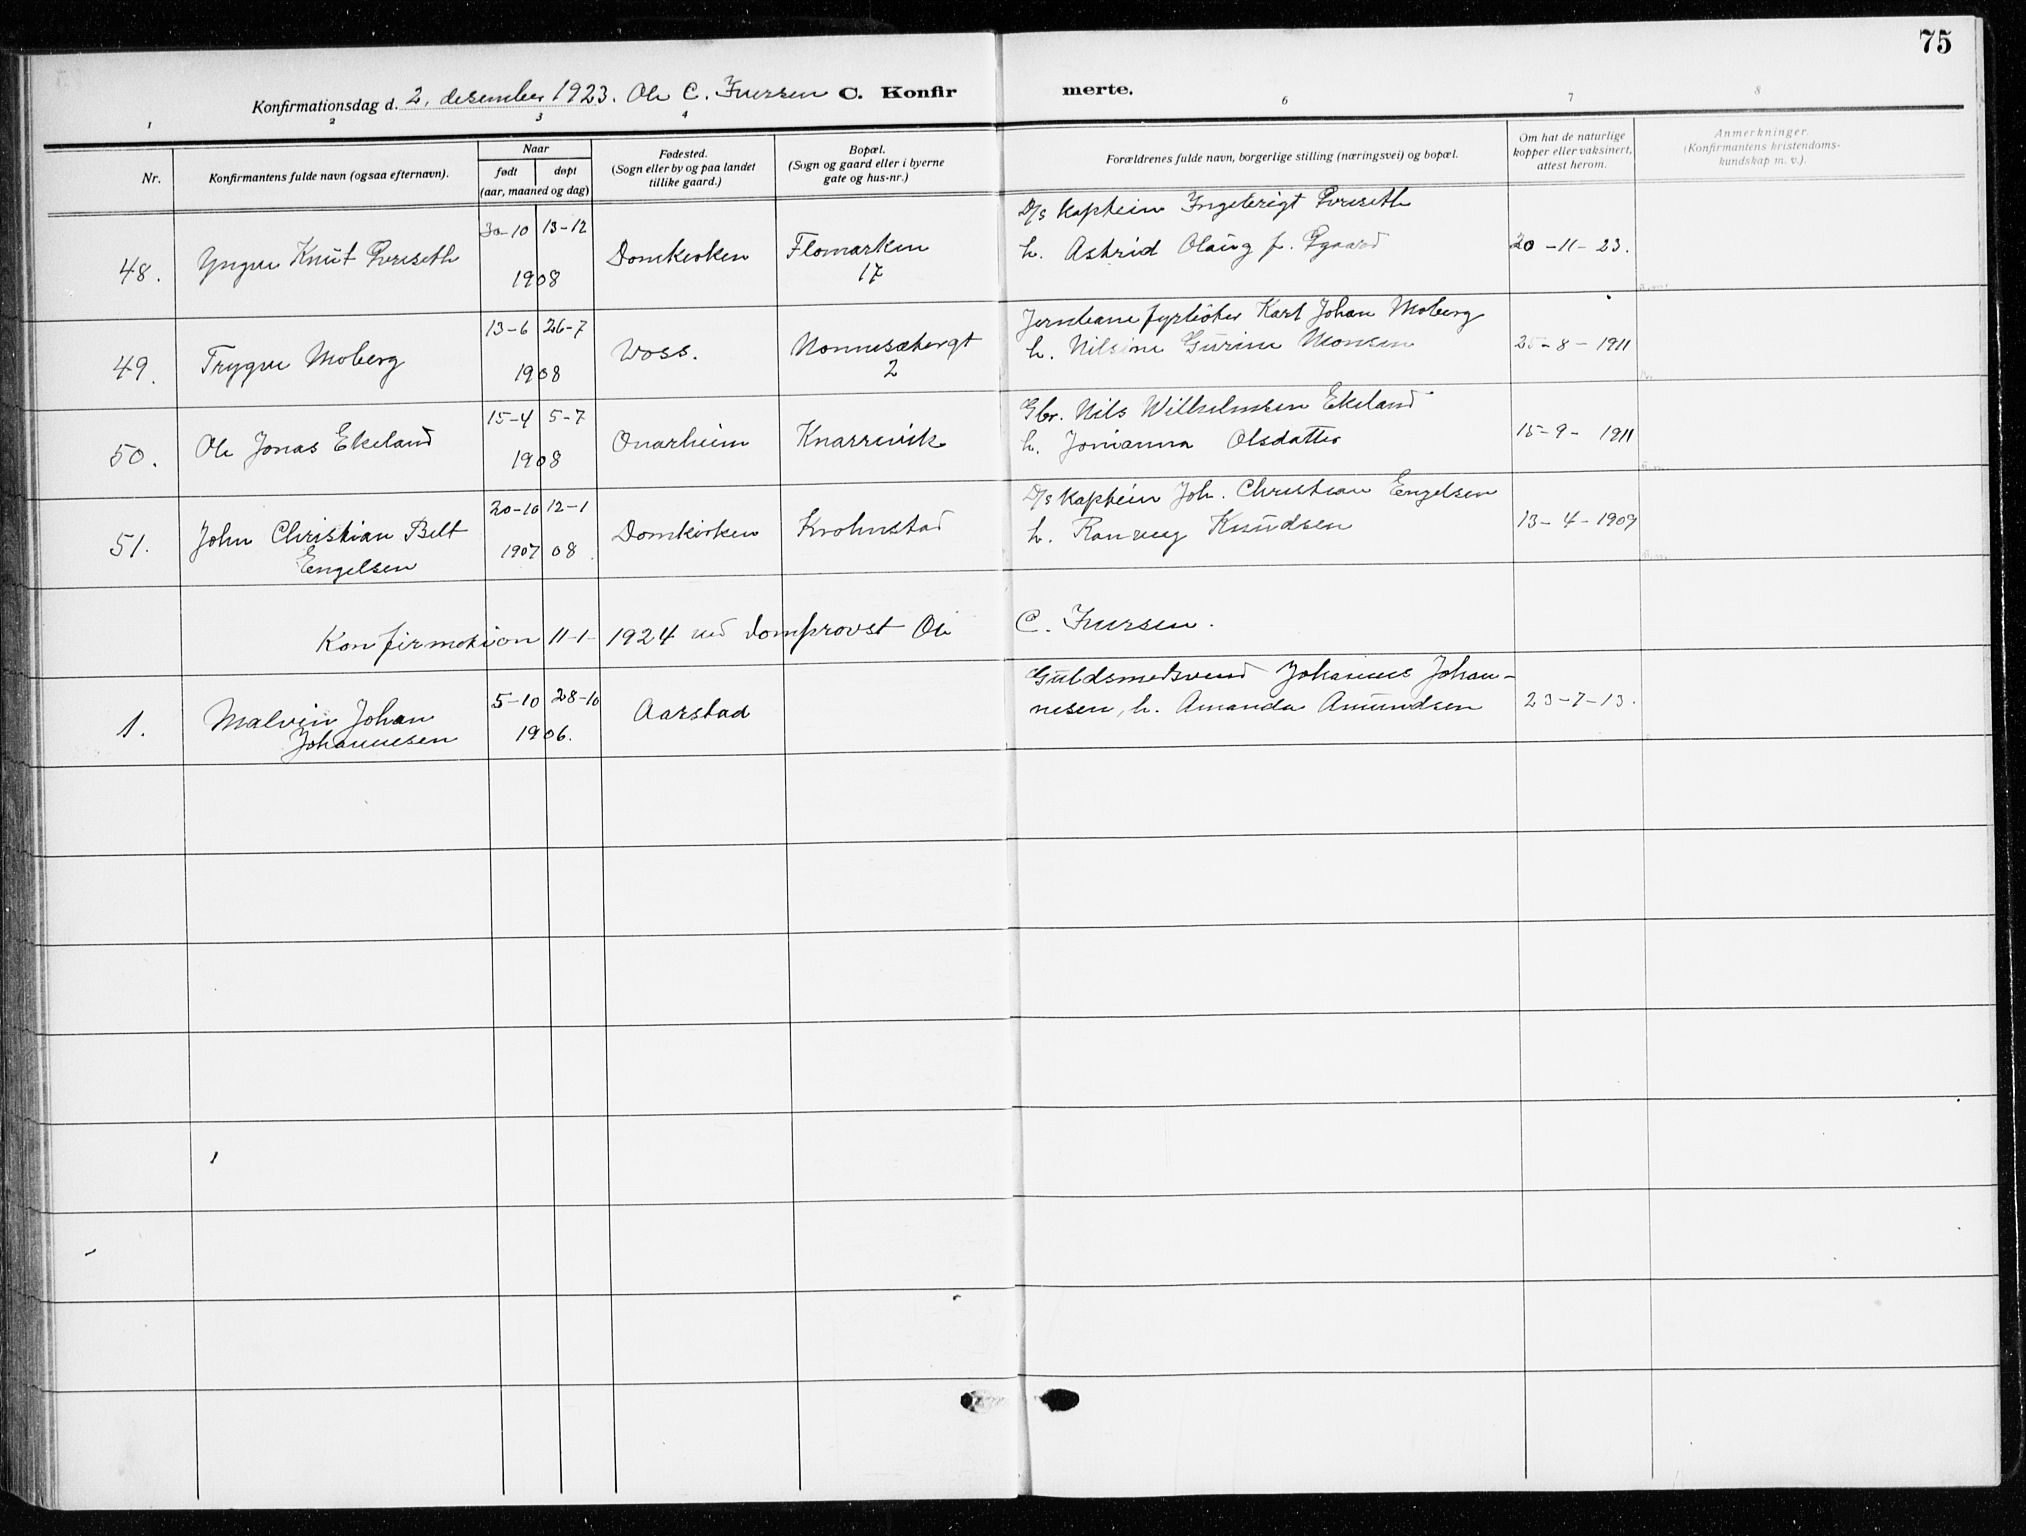 75
Konfirmationsdag d. 2. desember 1923. Ole C. Iversen C. Konfirmerte.
1 2 3 4 6 7 8
Nr.
Konfirmantens fulde navn (ogsaa efternavn).
Naar
født døpt
(aar, maaned og dag)
Fødested.
(Sogn eller by og paa landet
tillike gaard.)
Bopæl.
(Sogn og gaard eller i byerne
gate og hus-nr.)
Forældrenes fulde navn, borgerlige stilling (næringsvei) og bopæl.
Om hat de naturlige
kopper eller vaksinert,
attest herom.
Anmerkninger.
(Konfirmantens kristendoms-
kundskap m. v.).
48. Yngve Knut 30-10 13-12 1908 Domkirken Flomarken 17
D/s Kaptein Ingebrigt
h. Astrid Olaug f. 20-11-23.
49. Trygve Moberg 13-6 26-7 1908 Voss. Nonnesætergt 2
Jernbanefyrbøter Karl Johan Moberg
h. Nilsine Gurine Monsen 25-8-1911
50. Ole Jonas Ekeland 15-4 5-7 1908 Onarheim Knarrevik
Gbr. Nils Wilhelmsen Ekeland
h. Jonianna Olsdatter 15-9-1911
51. John Christian Belt
Engelsen 20-10 12-1 1907 08 Domkirken Krohnstad
D/s Kaptein Joh. Christian Engelsen
h. Ranveig Knudsen 13-4-1909
Konfirmation 11-1-1924 ved Domprovst Ole C. Iversen.
1. Malvin Johan
Johannesen 5-10 28-10 1906. Aarstad
Guldsmedsvend Johannes Johan-
nesen, h. Amanda Amundsen 23-7-13.